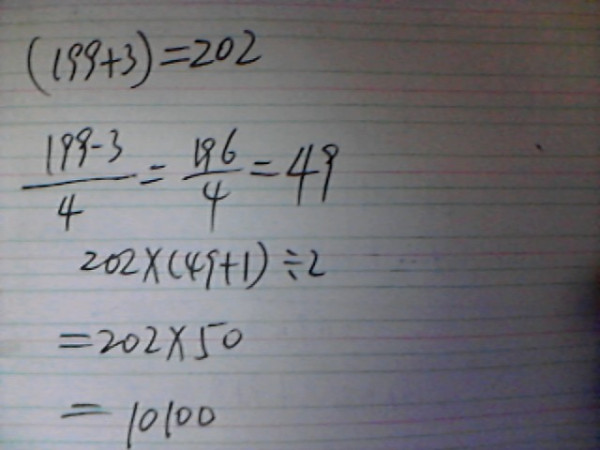 (199+3)=202
199-3/4=196/4=49
202×(49+1)÷2
=202×50
=10100